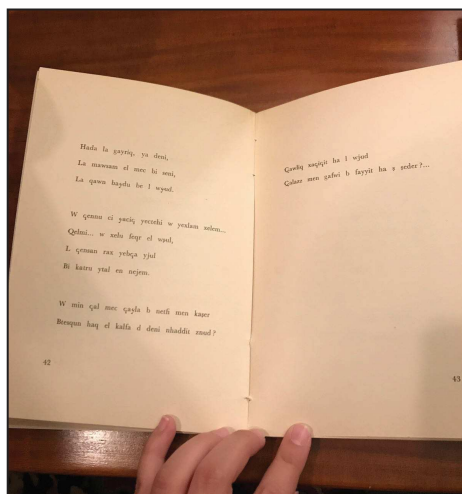 Hada la gayraq, ya deni,
La mawsam el mec bi seni,
La qawn haydu he l wjud.
W çennu ci yaciç yeczehi w yealam selem...
Qelmi... w xelu feqr el wjul,
L çensan rax yebqa yjul
Bi katru ytal en nejem.
W min çal mec çayla b neifi men kaser
Btesqun haq el kalfa d deni nhaddit znud?
42
Çawfiq xaqiqit ha l wjud
Çalazz men gafwi b fayyit ha s seder?...
43